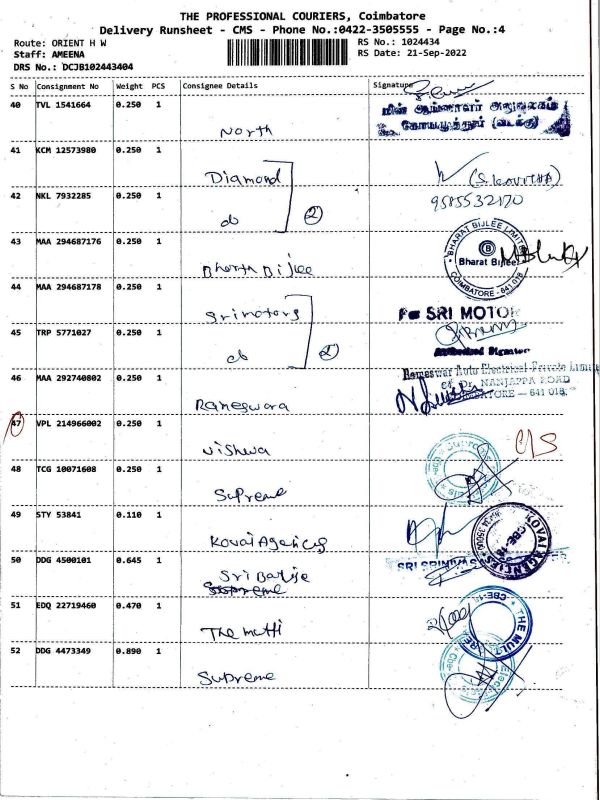 THE PROFESSIONAL COURIERS, Coimbatore
Delivery Runsheet - CMS - Phone No.:0422-3505555 - Page No.:4
Route: ORIENT H W
RS No.: 1024434
Staff: AMEENA
RS Date: 21-Sep-2022
DRS No.: DCJB102443404
S No Consignment No Weight PCS Consignee Details Signature
40 TVL 1541664 0.250 1
North
கோயமுத்தூர் (வடக்கு)
41 KCM 12573980 0.250 1
Diamond
(S. KAVITHA)
42 NKL 7932285 0.250 1
9585532170
do
2
43 MAA 294687176 0.250 1
Bharth Bijlee
BHARAT BIJLEE LIMITED
Bharat Bijlee
COIMBATORE - 641 018
44 MAA 294687178 0.250 1
Srimotors
For SRI MOTOR
45 TRP 5771027 0.250 1
do
2
Authorised Signatory
46 MAA 292740802 0.250 1
Rameswara
Rameswar Auto Electrical Private Limi
Dr. NANJAPPA ROAD
COIMBATORE - 641 018.
47 VPL 214966002 0.250 1
Vishwa
C/S
48 TCG 10071608 0.250 1
Supreme
Supreme
49 STY 53841 0.110 1
Kovai Agencies
KOVAI AGENCIES
CBE-18
50 DDG 4500101 0.645 1
Sri Balije
Supreme
SRI SRINIVAS
51 EDQ 22719460 0.470 1
The multi
THE MULTI
CBE-18
52 DDG 4473349 0.890 1
Supreme